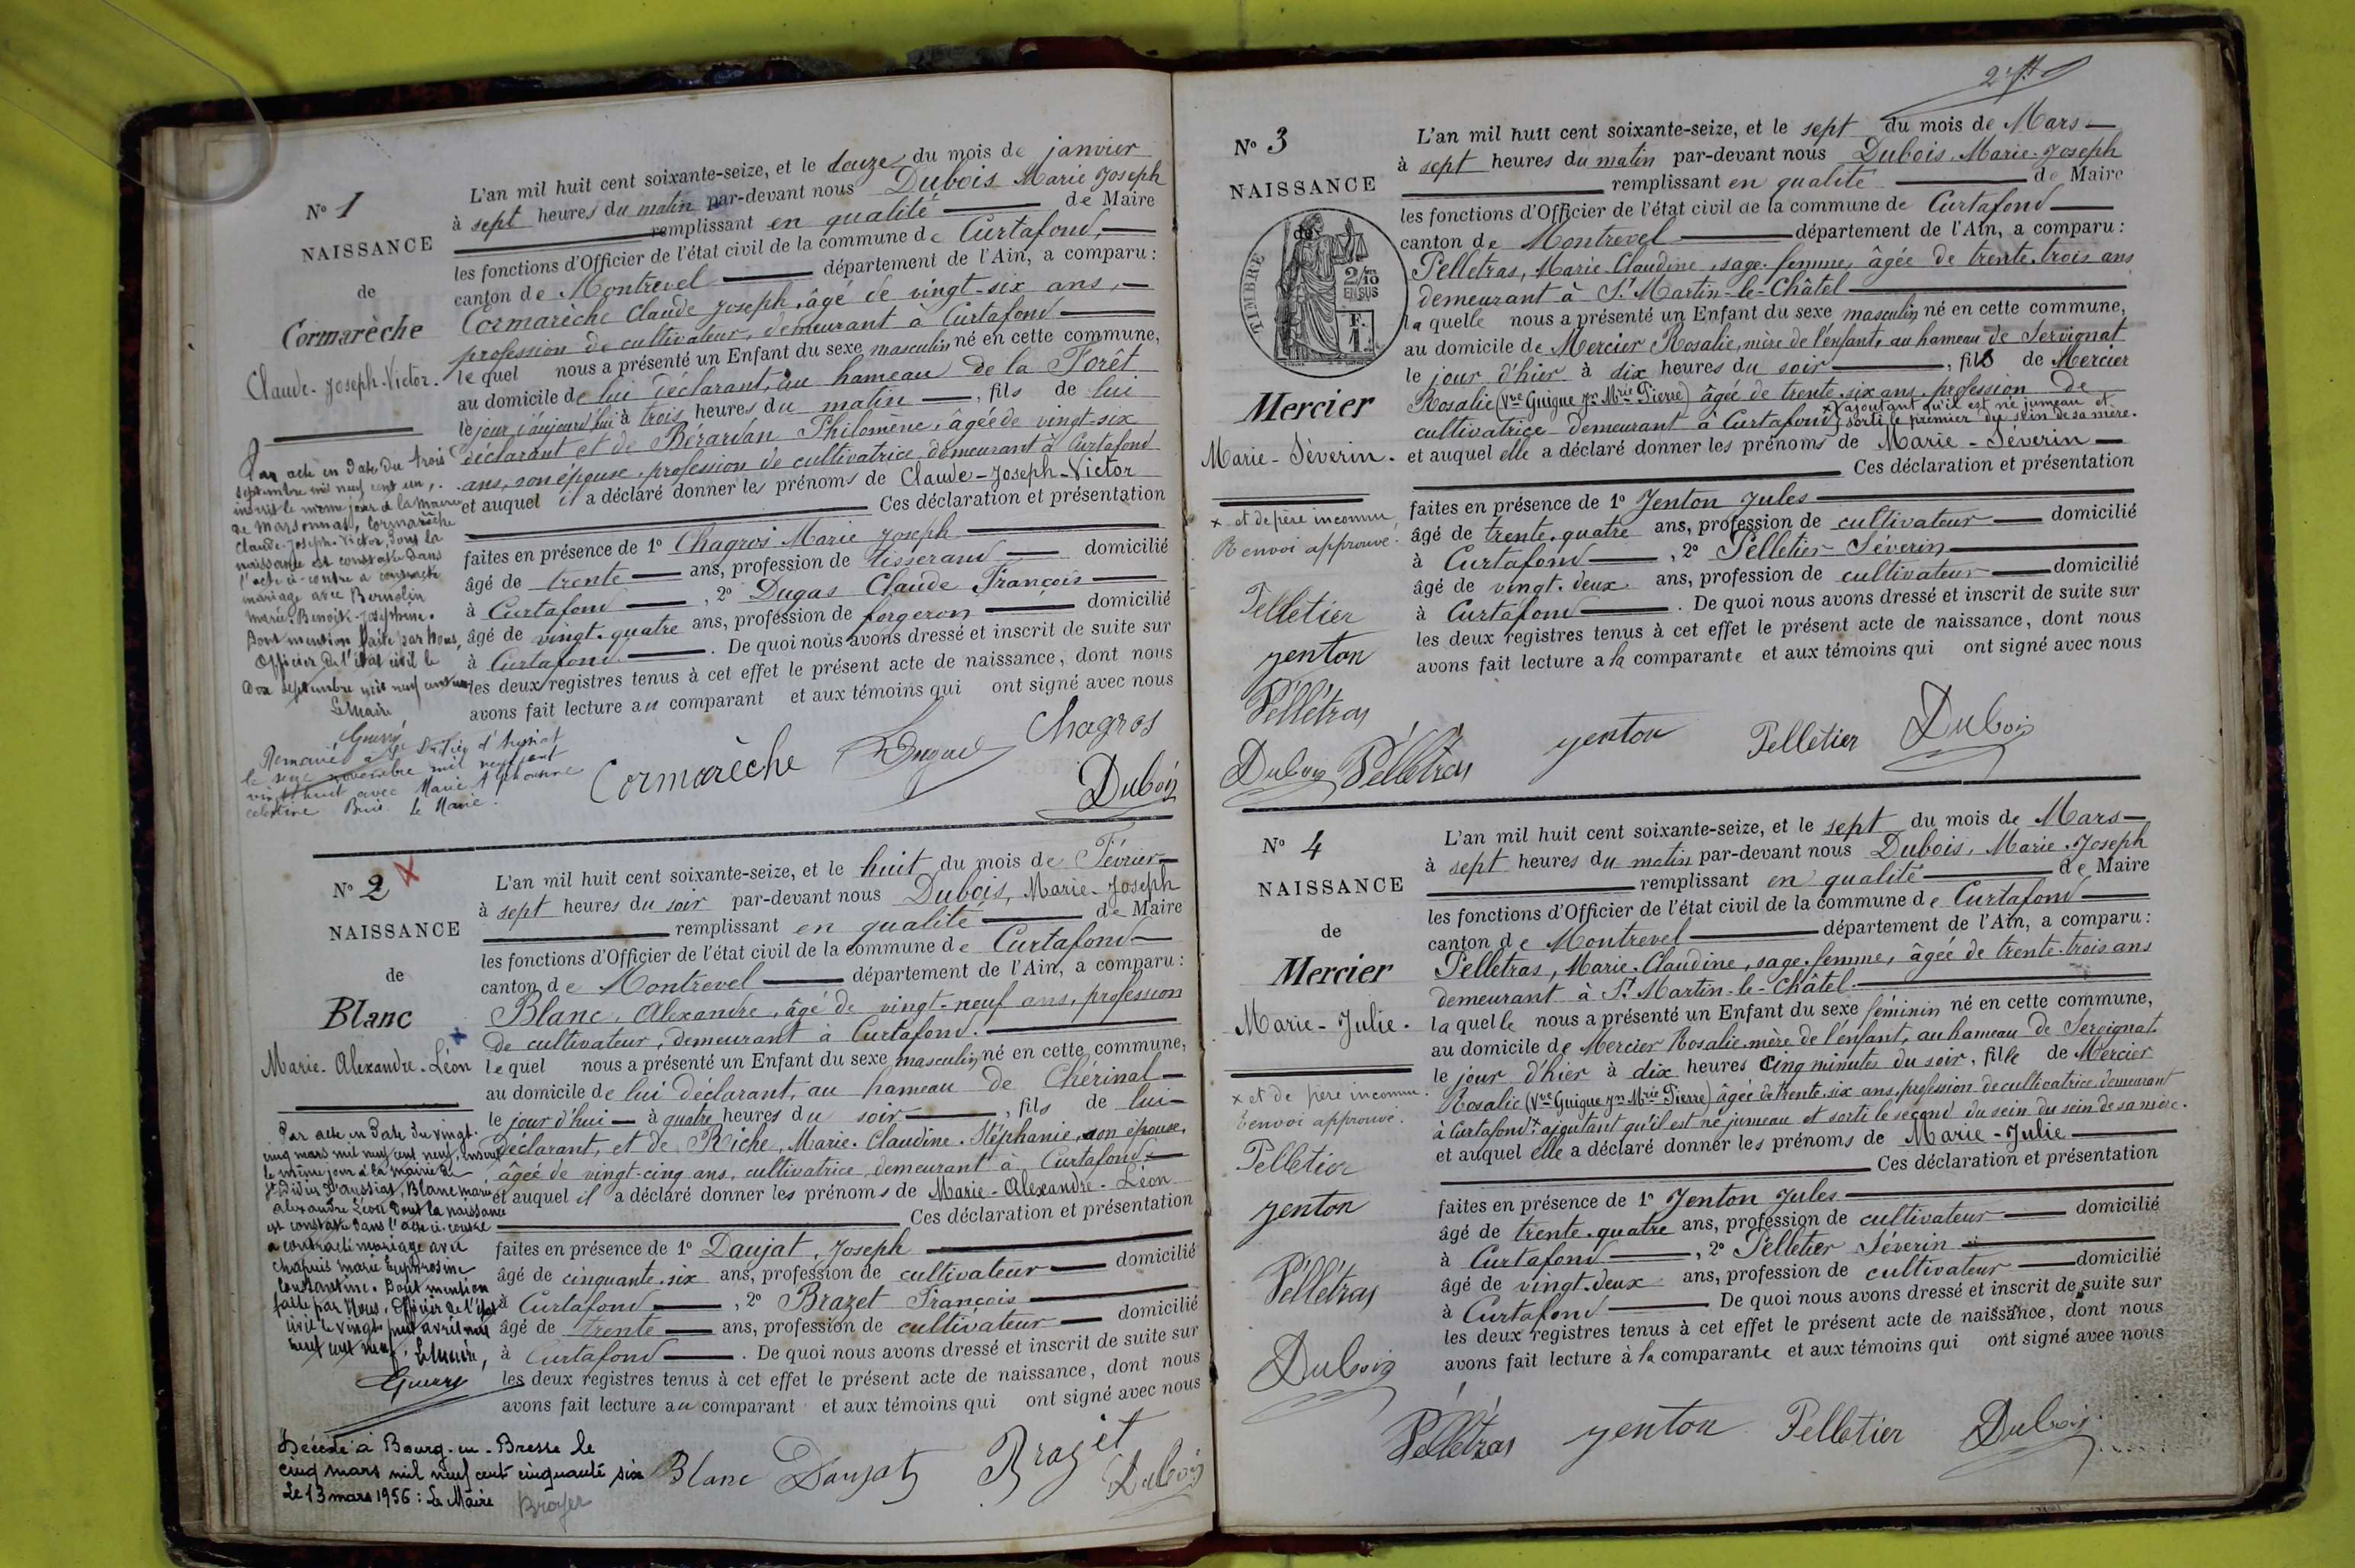 N° 1
NAISSANCE
de
Cormarèche
Claude-Joseph-Victor.
L'an mil huit cent soixante-seize, et le douze du mois de janvier
à sept heures du matin par-devant nous Dubois Marie Joseph
remplissant en qualité de Maire
les fonctions d'Officier de l'état civil de la commune de Curtafond,
canton de Montrevel département de l'Ain, a comparu :
Cormarèche Claude Joseph, âgé de vingt-six ans,
profession de cultivateur, demeurant à Curtafond
lequel nous a présenté un Enfant du sexe masculin né en cette commune,
au domicile de lui déclarant, au hameau de la Forêt
le jour d'aujourd'hui à trois heures du matin, fils de lui
déclarant et de Bérardan Philomène, âgée de vingt-six
ans, son épouse, profession de cultivatrice, demeurant à Curtafond
et auquel il a déclaré donner les prénoms de Claude-Joseph-Victor
Ces déclaration et présentation
faites en présence de 1° Chagros Marie Joseph
âgé de trente ans, profession de tisserand domicilié
à Curtafond, 2° Dugas Claude François
âgé de vingt-quatre ans, profession de forgeron domicilié
à Curtafond. De quoi nous avons dressé et inscrit de suite sur
les deux registres tenus à cet effet le présent acte de naissance, dont nous
avons fait lecture au comparant et aux témoins qui ont signé avec nous
Par acte en date du trois
septembre mil neuf cent un,
inscrit le même jour à la Mairie
de Marsonnas, Cormarèche
Claude-Joseph-Victor, dont la
naissance est constatée dans
l'acte ci-contre a contracté
mariage avec Bernolin
Marie-Benoit-Joséphine.
Dont mention faite par Nous,
Officier de l'état civil le
septembre mil neuf cent un
Le Maire
Guerry
Remarié à St Didier d'Aussiat
le seize novembre mil neuf cent
vingt huit avec Marie
celestine Le Maire.
Cormarèche Dugas Chagros
Dubois
N° 2
NAISSANCE
de
Blanc
Marie-Alexandre-Léon
L'an mil huit cent soixante-seize, et le huit du mois de Février
à sept heures du soir par-devant nous Dubois, Marie-Joseph
remplissant en qualité de Maire
les fonctions d'Officier de l'état civil de la commune de Curtafond
canton de Montrevel département de l'Ain, a comparu :
Blanc, Alexandre, âgé de vingt-neuf ans, profession
de cultivateur, demeurant à Curtafond.
lequel nous a présenté un Enfant du sexe masculin, né en cette commune,
au domicile de lui déclarant, au hameau de Chérinal
le jour d'hui à quatre heures du soir, fils de lui
déclarant, et de Riche, Marie-Claudine-Stéphanie, son épouse,
âgée de vingt-cinq ans, cultivatrice, demeurant à Curtafond
et auquel il a déclaré donner les prénoms de Marie-Alexandre-Léon
Ces déclaration et présentation
faites en présence de 1° Daujat, Joseph
âgé de cinquante-six ans, profession de cultivateur domicilié
à Curtafond, 2° Brazet François
âgé de trente ans, profession de cultivateur domicilié
à Curtafond. De quoi nous avons dressé et inscrit de suite sur
les deux registres tenus à cet effet le présent acte de naissance, dont nous
avons fait lecture au comparant et aux témoins qui ont signé avec nous
Par acte en date du vingt-
cinq mars mil neuf cent neuf, inscrit
le même jour à la mairie de
St Didier d'Aussiat, Blanc Marie
Alexandre Léon dont la naissance
est constatée dans l'acte ci-contre
a contracté mariage avec
Chapuis Marie Euphrosine
Constantine. Dont mention
faite par Nous, Officier de l'état
civil le vingt huit avril mil
neuf cent neuf. Le Maire,
Guerry
Décédé à Bourg-en-Bresse le
cinq mars mil neuf cent cinquante six
Le 13 mars 1956 : Le Maire
Broyer
Blanc Daujat Brazet Dubois
N° 3
NAISSANCE
de
TIMBRE
2/10
EN SUS
Mercier
Marie-Séverin.
L'an mil huit cent soixante-seize, et le sept du mois de Mars
à sept heures du matin par-devant nous Dubois, Marie-Joseph
remplissant en qualité de Maire
les fonctions d'Officier de l'état civil de la commune de Curtafond
canton de Montrevel département de l'Ain, a comparu :
Pelletras, Marie-Claudine, sage-femme, âgée de trente-trois ans
demeurant à St Martin-le-Châtel
laquelle nous a présenté un Enfant du sexe masculin, né en cette commune,
au domicile de Mercier Rosalie, mère de l'enfant, au hameau de Servignat
le jour d'hier à dix heures du soir, fils de Mercier
Rosalie (Vve Guigue Jn Mrie Pierre) âgée de trente-six ans, profession de
cultivatrice demeurant à Curtafond, x ajoutant qu'il est né jumeau et
sorti le premier du sein de sa mère.
et auquel elle a déclaré donner les prénoms de Marie-Séverin
Ces déclaration et présentation
faites en présence de 1° Jenton Jules
âgé de trente-quatre ans, profession de cultivateur domicilié
à Curtafond, 2° Pelletier Séverin
âgé de vingt-deux ans, profession de cultivateur domicilié
à Curtafond. De quoi nous avons dressé et inscrit de suite sur
les deux registres tenus à cet effet le présent acte de naissance, dont nous
avons fait lecture à la comparante et aux témoins qui ont signé avec nous
x et de père inconnu,
Renvoi approuvé.
Pelletier
Jenton
Pélletras
Dubois Pélletras Jenton Pelletier Dubois
N° 4
NAISSANCE
de
Mercier
Marie-Julie.
L'an mil huit cent soixante-seize, et le sept du mois de Mars
à sept heures du matin par-devant nous Dubois, Marie-Joseph
remplissant en qualité de Maire
les fonctions d'Officier de l'état civil de la commune de Curtafond
canton de Montrevel département de l'Ain, a comparu :
Pelletras, Marie-Claudine, sage-femme, âgée de trente-trois ans
demeurant à St Martin-le-Châtel.
laquelle nous a présenté un Enfant du sexe féminin né en cette commune,
au domicile de Mercier Rosalie, mère de l'enfant, au hameau de Servignat.
le jour d'hier à dix heures cinq minutes du soir, fille de Mercier
Rosalie (Vve Guigue Jn Mrie Pierre) âgée de trente-six ans, profession de cultivatrice, demeurant
à Curtafond, x ajoutant qu'il est né jumeau et sorti le second du sein du sein de sa mère.
et auquel elle a déclaré donner les prénoms de Marie-Julie
Ces déclaration et présentation
faites en présence de 1° Jenton Jules
âgé de trente-quatre ans, profession de cultivateur domicilié
à Curtafond, 2° Pelletier Séverin
âgé de vingt-deux ans, profession de cultivateur domicilié
à Curtafond De quoi nous avons dressé et inscrit de suite sur
les deux registres tenus à cet effet le présent acte de naissance, dont nous
avons fait lecture à la comparante et aux témoins qui ont signé avec nous
x et de père inconnu.
Renvoi approuvé.
Pelletier
Jenton
Pélletras
Dubois
Pélletras Jenton Pelletier Dubois